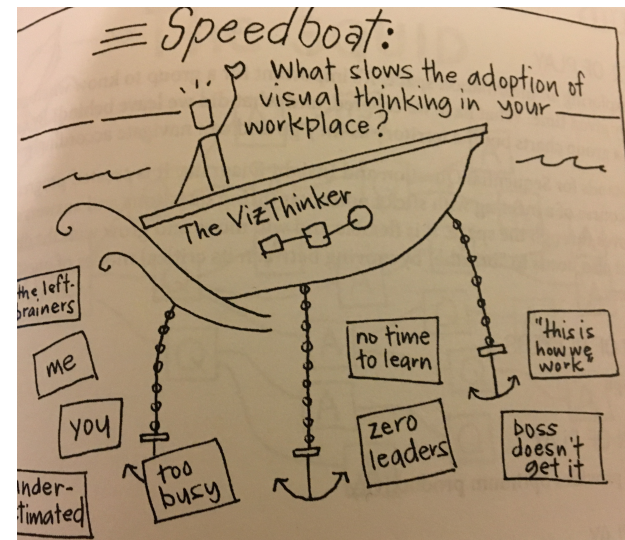 Speedboat:
What slows the adoption of
visual thinking in your
workplace?
The VizThinker
the left-
brainers
me
you
under-
timated
too
busy
no time
to learn
zero
leaders
"this is
how we
work"
boss
doesn't
get it